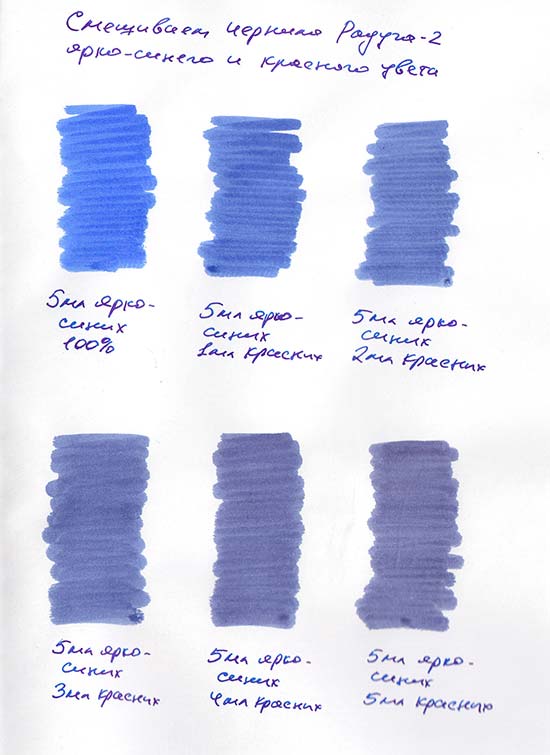 Смешиваем чернила Радуга-2
ярко-синего и красного цвета
5мл ярко-
синих
100%
5мл ярко-
синих
1мл красних
5мл ярко-
синих
2мл красних
5мл ярко-
синих
3мл красних
5мл ярко-
синих
4мл красних
5мл ярко-
синих
5мл красних